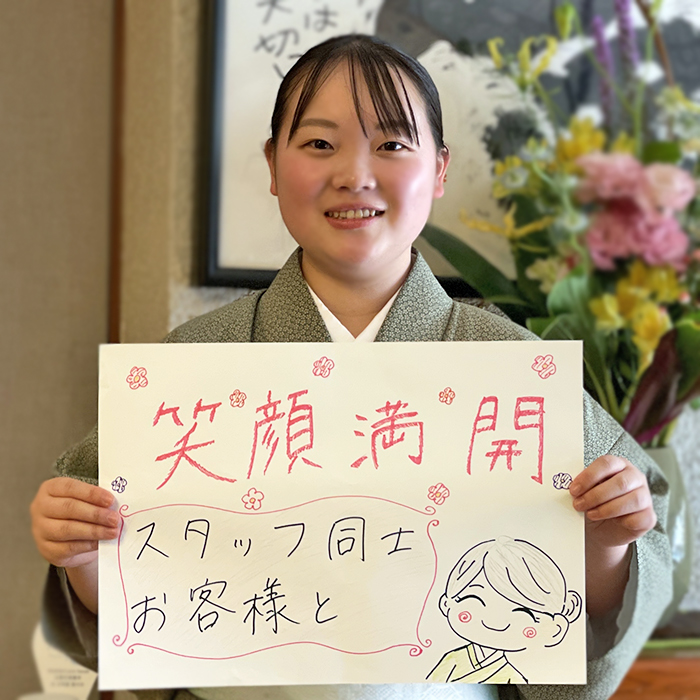 は
大切
笑顔満開
スタッフ同士
お客様と